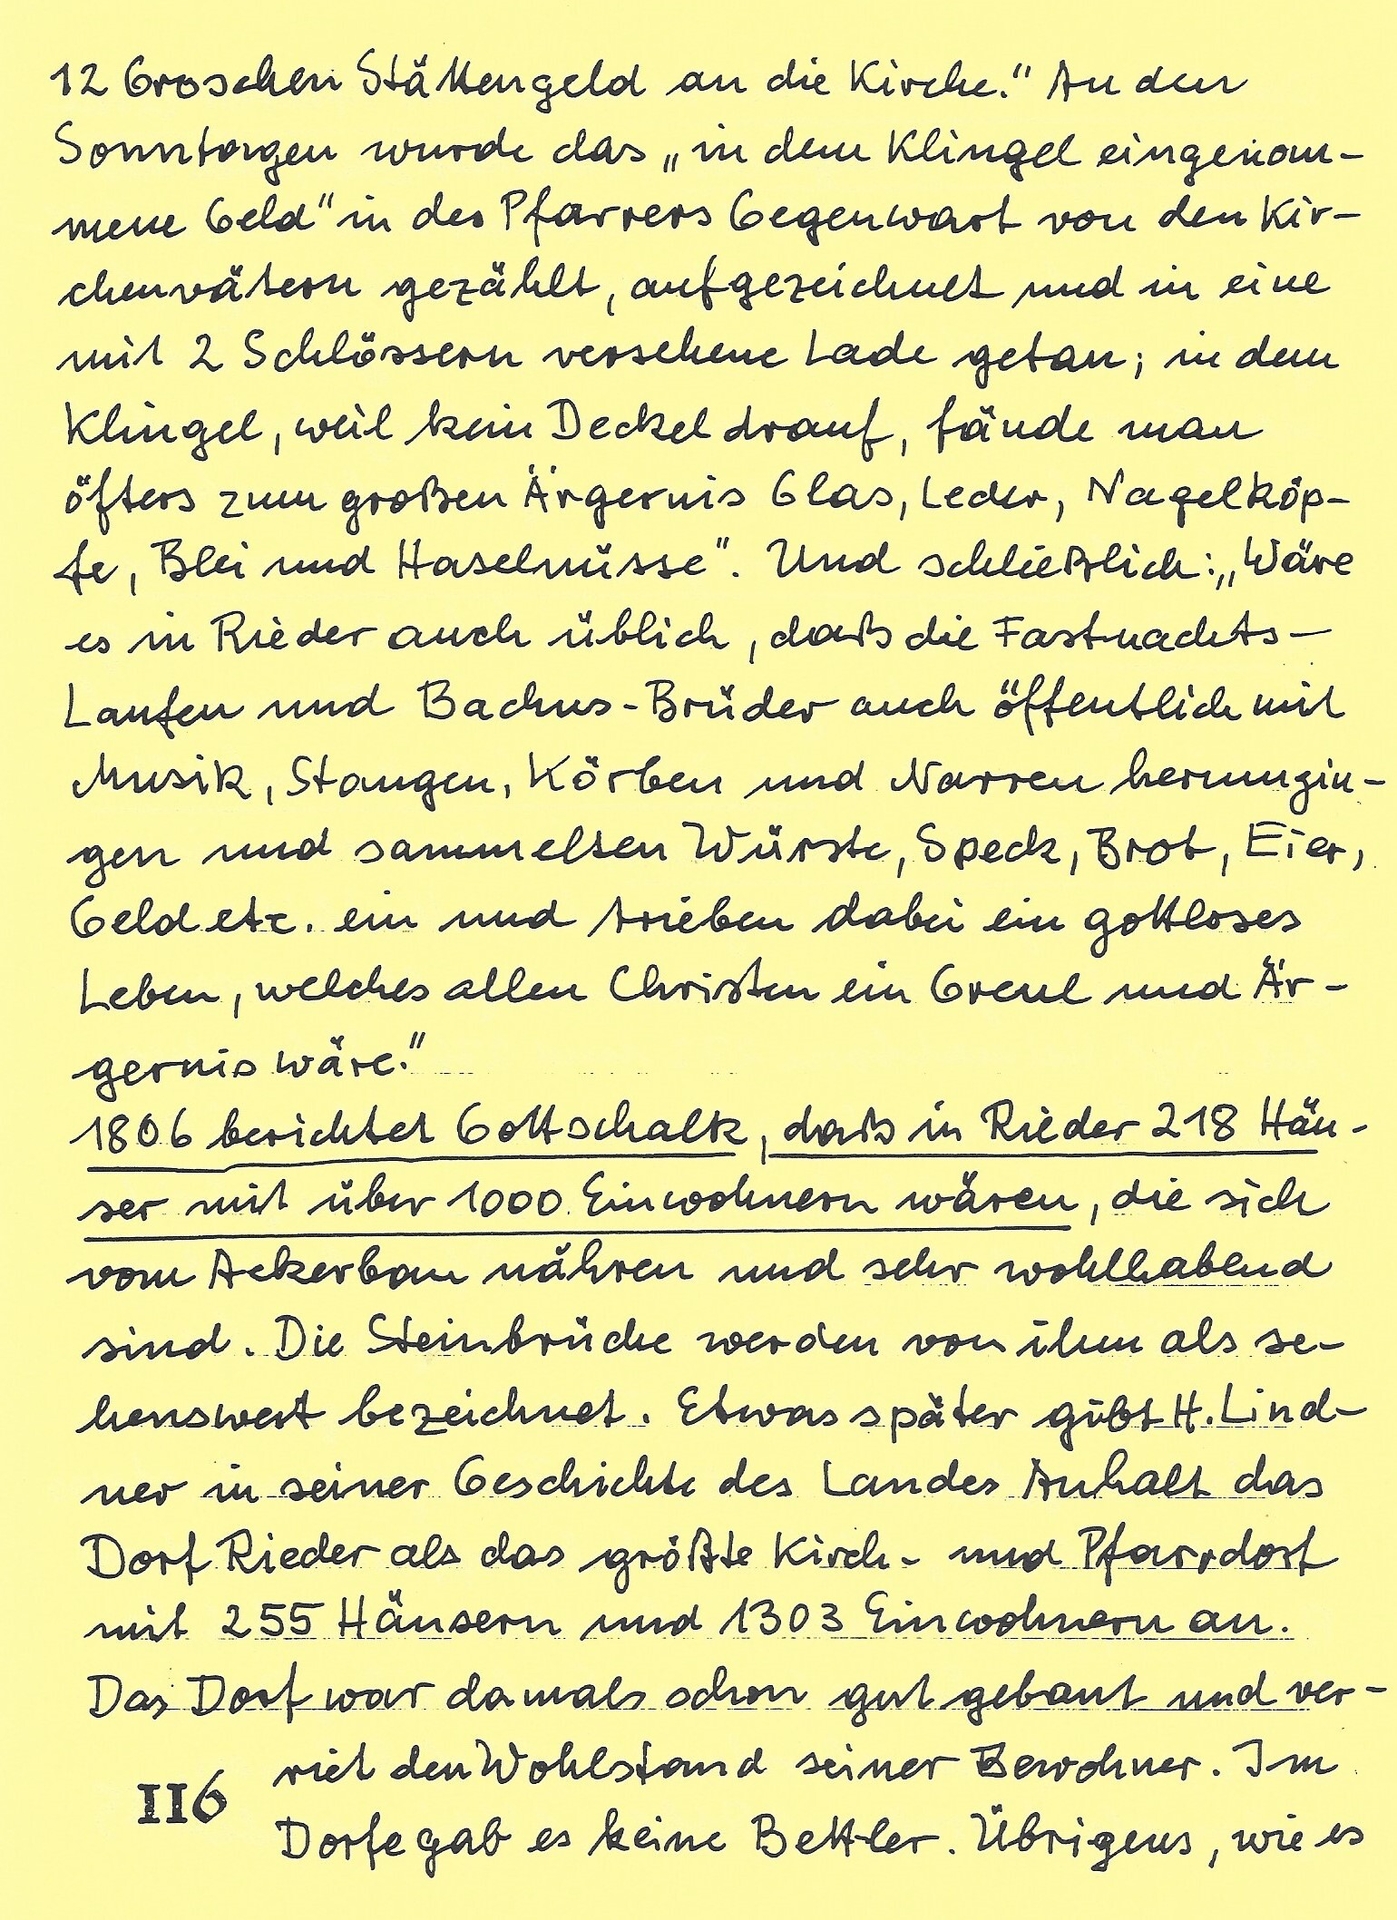 12 Groschen Stättengeld an die Kirche." An den
Sonntagen wurde das „in dem Klingel eingenom-
mene Geld" in des Pfarrers Gegenwart von den Kir-
chenvätern gezählt, aufgezeichnet und in eine
mit 2 Schlössern versehene Lade getan; in dem
Klingel, weil kein Deckel drauf, fände man
öfters zum großen Ärgernis Glas, Leder, Nagelköp-
fe, Blei und Haselnüsse". Und schließlich: „Wäre
es in Rieder auch üblich, daß die Fastnachts-
Laufen und Bachus-Brüder auch öffentlich mit
Musik, Stangen, Körben und Narren herumgin-
gen und sammelten Würste, Speck, Brot, Eier,
Geld etc. ein und trieben dabei ein gottloses
Leben, welches allen Christen ein Greul und Är-
gernis wäre."
1806 berichtet Gottschalk, daß in Rieder 218 Häu-
ser mit über 1000 Einwohnern wären, die sich
vom Ackerbau nähren und sehr wohlhabend
sind. Die Steinbrüche werden von ihm als se-
henswert bezeichnet. Etwas später gibt H. Lind-
ner in seiner Geschichte des Landes Anhalt das
Dorf Rieder als das größte Kirch- und Pfarrdorf
mit 255 Häusern und 1303 Einwohnern an.
Das Dorf war damals schon gut gebaut und ver-
riet den Wohlstand seiner Bewohner. Im
116
Dorfe gab es keine Bettler. Übrigens, wie es